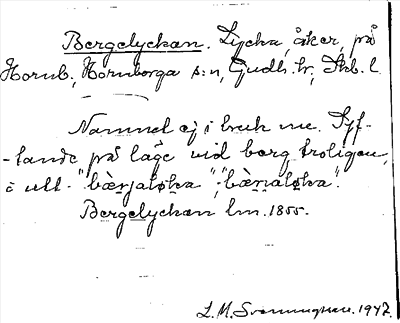 Bergelyckan. Lycka, åker, på
Hornb., Hornborga s:n, Gudh. hr, Skb. l.
Namnet ej i bruk nu. Syf-
-tande på läge vid berg troligen,
i utt. "bærjaløka", "bærjaløka".
Bergelyckan lm. 1855.
L. M. Svenungsson. 1947.